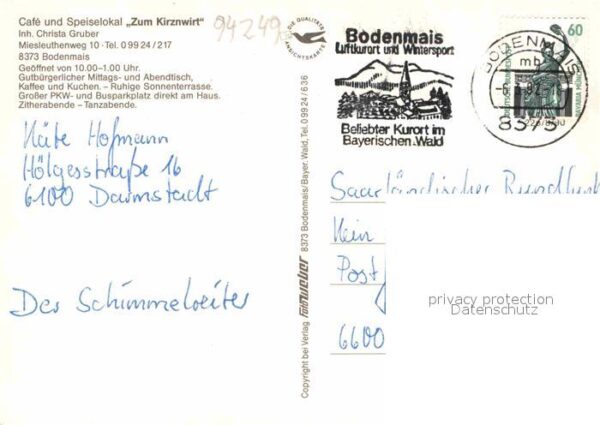 Café und Speiselokal „Zum Kirznwirt“
Inh. Christa Gruber
Miesleuthenweg 10 · Tel. 0 99 24 / 217
8373 Bodenmais
Geöffnet von 10.00-1.00 Uhr.
Gutbürgerlicher Mittags- und Abendtisch,
Kaffee und Kuchen. – Ruhige Sonnenterrasse.
Großer PKW- und Busparkplatz direkt am Haus.
Zitherabende – Tanzabende.
94249
Käte Hofmann
Hölgesstraße 16
6100 Darmstadt
Der Schimmelreiter
DIE QUALITÄTS
ANSICHTSKARTE
Copyright bei Verlag Foto Weber 8373 Bodenmais/Bayer. Wald, Tel. 0 99 24 / 6 36
Bodenmais
Luftkurort und Wintersport
Beliebter Kurort im
Bayerischen Wald
60
BAVARIA MÜNCHEN
BODENMAIS
mb
8373
Saarländischer Rundfunk
Kein
Post
6600
privacy protection
Datenschutz